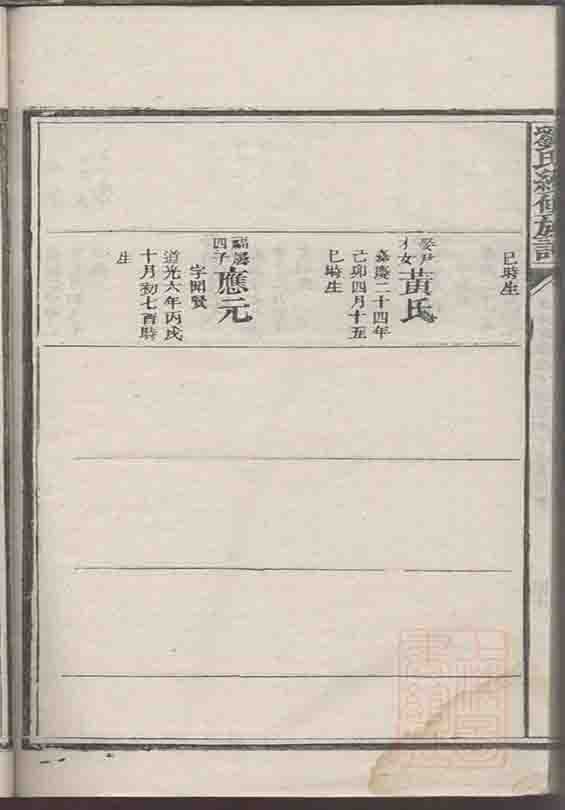 劉氏續修族譜
巳時生
娶尹
才女
黃氏
嘉慶二十四年
己卯四月十五
巳時生
福謙
四子
應元
字聞賢
道光六年丙戌
十月初七酉時
生